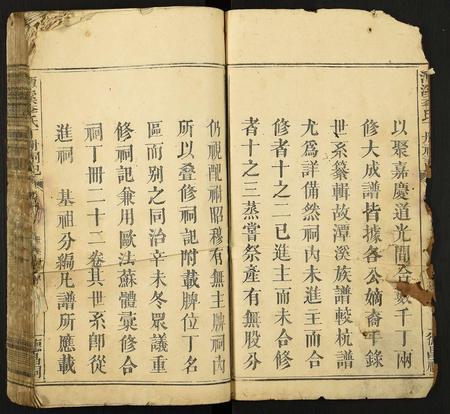 以聚嘉慶道光間合數千丁兩
修大成譜皆據各公嫡裔手錄
世系纂輯故潭溪族譜較杭譜
尤為詳備然祠內未進主而合
修者十之二已進主而未合修
者十之三蒸嘗祭產有無股分
仍視配祔昭穆有無主牌祠內
所以叠修祠記附載牌位丁名
區而别之同治辛未冬眾議重
修祠記兼用歐法蘇體彙修合
祠丁冊二十二卷其世系即從
進祠 基祖分編凡譜所應載